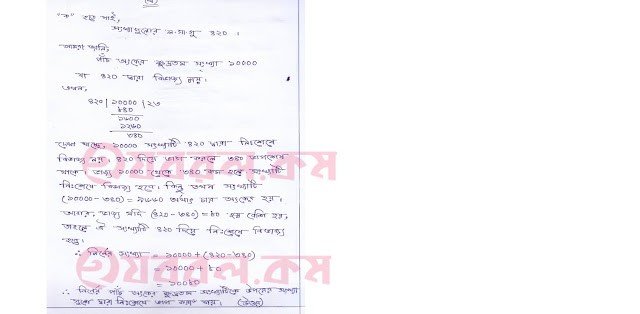 (খ)
"ক" হতে পাই,
সংখ্যাগুলোর ল.সা.গু ৪২০ ।
আমরা জানি,
পাঁচ অংকের ক্ষুদ্রতম সংখ্যা ১০০০০
যা ৪২০ দ্বারা বিভাজ্য নয়।
এখন,
৪২০ | ১০০০০ | ২৩
৮৪০
১৬০০
১২৬০
৩৪০
দেখা যাচ্ছে, ১০০০০ সংখ্যাটি ৪২০ দ্বারা নিঃশেষে
বিভাজ্য নয়। ৪২০ দিয়ে ভাগ করলে ৩৪০ ভাগশেষ
থাকে। ভাজ্য ১০০০০ থেকে ৩৪০ কম হলে সংখ্যাটি
নিঃশেষে বিভাজ্য হবে। কিন্তু তখন সংখ্যাটি
(১০০০০-৩৪০) = ৯৬৬০ অর্থাৎ চার অংকের হয়।
আবার, ভাজ্য যদি (৪২০-৩৪০) = ৮০ হয় বেশি হয়,
তাহলে ঐ সংখ্যাটি ৪২০ দিয়ে নিঃশেষে বিভাজ্য
হবে।
∴ নির্ণেয় সংখ্যা = ১০০০০ + (৪২০-৩৪০)
= ১০০০০ + ৮০
= ১০০৮০
∴ নির্ণেয় পাঁচ অংকের ক্ষুদ্রতম সংখ্যাটিকে প্রদত্ত সংখ্যা
দ্বারা নিঃশেষে ভাগ করা যায়। (উত্তর)
যবরল.কম
যবরল.কম